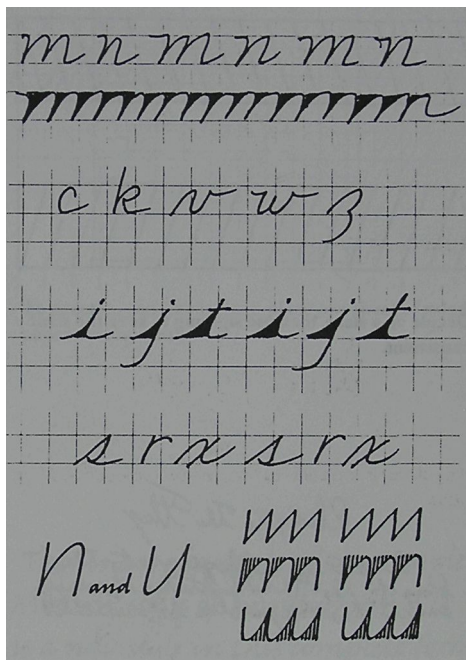 m n m n m n
c k v w z
i j t i j t
s r x s r x
n and u